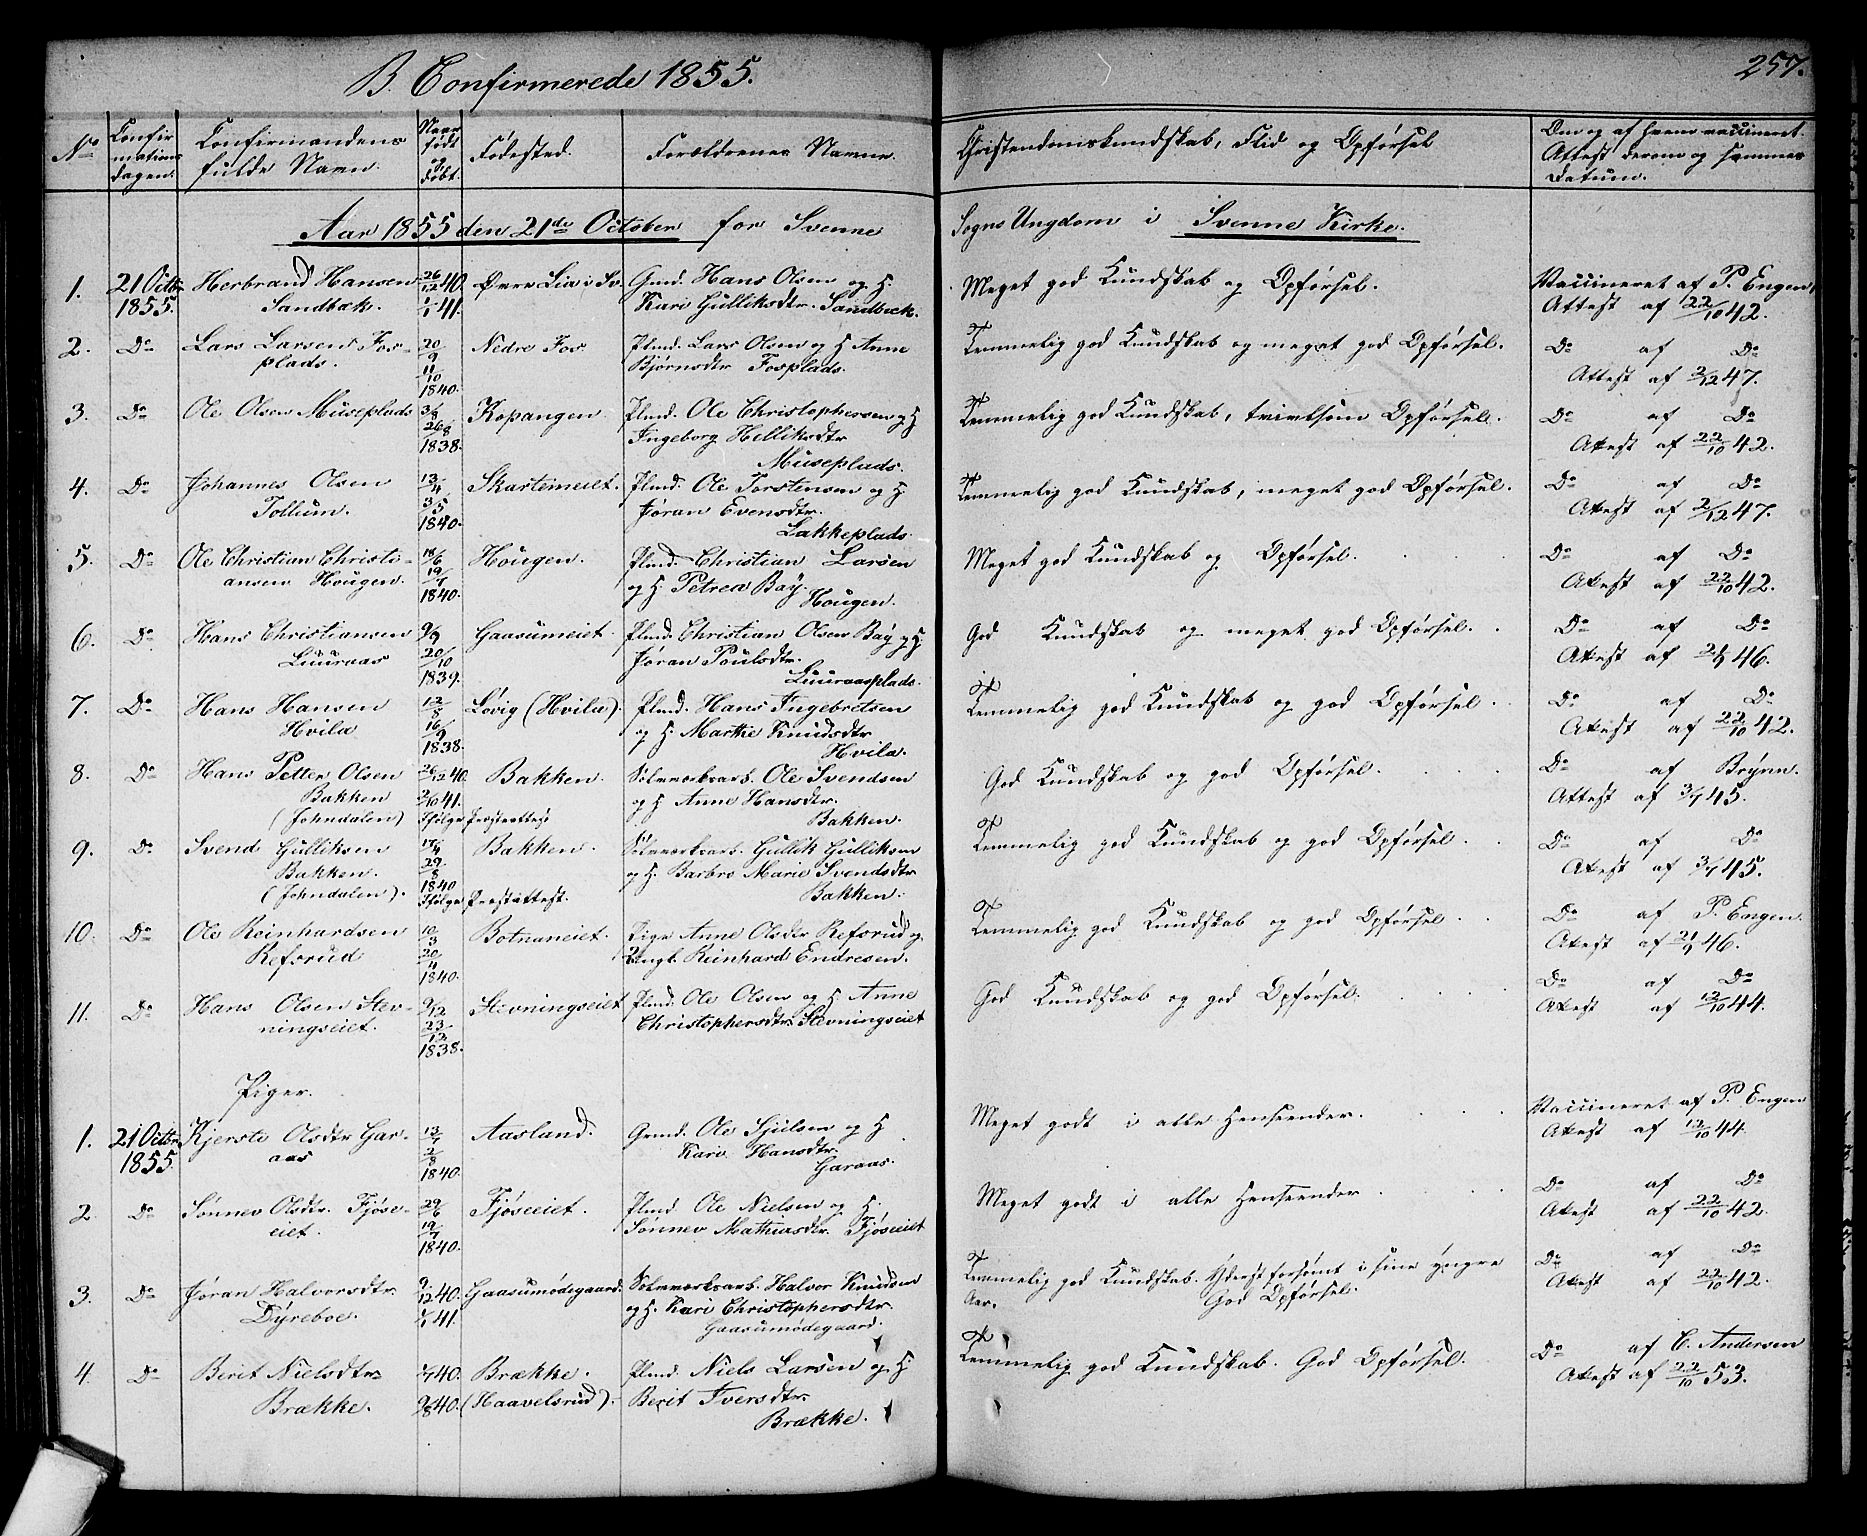 B. Confirmerede 1855.
257.
No
Confirmationsdagen.
Confirmandens fulde Navn.
Naar født og døbt.
Fødested.
Forældrenes Navne.
Christendomskundskab, Flid og Opførsel
Om og af hvem vaccineret. Attest derom og sammes Datum.
Aar 1855 den 21de October for Svenne Sogns Ungdom i Svenne Kirke.
1. 21 Octbr Herbrand Hansen 26/12 40. Øvre Lia i Sv. Gmd. Hans Olsen og H. Meget god Kundskab og Opførsel. Vaccineret af P. Engen,
1855. Sandbæk. 1/1 41. Kari Gulliksdtr. Sandbæk. Attest af 22/10 42.
2. Do Lars Larsen Fos- 20/9 Nedre Fos. Plmd. Lars Olsen og H. Anne Temmelig god Kundskab og meget god Opførsel. Do af Do
plads. 11/10 1840. Bjørnsdtr Fosplads. Attest af 2/12 47.
3. Do Ole Olsen Museplads 3/8 Kopangen. Plmd. Ole Christophersen og H Temmelig god Kundskab, tvivlsom Opførsel. Do af Do
26/8 1838. Ingeborg Helliksdtr Attest af 22/10 42.
Museplads.
4. Do Johannes Olsen 13/4 Skarteieiet. Plmd. Ole Torstensen og H. Temmelig god Kundskab, meget god Opførsel. Do af Do
Tollum. 3/5 1840. Jøran Evensdtr. Attest af 2/12 47.
Lakkeplads.
5. Do Ole Christian Christi- 18/6 Hougen. Plmd. Christian Larsen Meget god Kundskab og Opførsel. Do af Do
ansen Hougen. 19/7 1840. og H. Petrea Bay. Attest af 22/10 42.
Hougen.
6. Do Hans Christiansen 9/9 Gaasumeiet. Plmd. Christian Olsen Bay og H God Kundskab og meget god Opførsel. Do af Do
Luuraas 20/10 1839. Jøran Poulsdtr. Attest af 21/9 46.
Luuraasplads.
7. Do Hans Hansen 12/8 Løvig (Hvila). Plmd. Hans Ingebretsen Temmelig god Kundskab og god Opførsel. Do af Do
Hvila 16/9 1838. og H. Marthe Knudsdtr Attest af 22/10 42.
Hvila.
8. Do Hans Petter Olsen 26/12 40. Bakken. Sølvværksarb. Ole Svendsen God Kundskab og god Opførsel. Do af Brynn.
Bakken 2/10 41. og H Anne Hansdtr. Attest af 3/7 45.
(Johndalen) Ifølge Præsteattest Bakken.
9. Do Svend Gulliksen 17/4 Bakken. Sølvværksarb. Gullik Gulliksen Temmelig god Kundskab og god Opførsel. Do af Do
Bakken. 29/8 og H. Barbro Marie Svendsdtr Attest af 3/7 45.
(Johndalen). 1840 Ifølge Præstattest. Bakken.
10. Do Ole Reinhardsen 10/3 Botnaneiet. Pige Anne Olsdtr Refsrud og Temmelig god Kundskab og god Opførsel. Do af P. Engen.
Refsrud 20/4 1840. Ungk. Reinhard Endresen. Attest af 21/9 46.
11. Do Hans Olsen Stev- 9/12 Stevningseiet Plmd. Ole Olsen og H Anne God Kundskab og god Opførsel. Do af Do
ningseiet. 23/12 1838. Christophersdtr. Stevningseiet Attest af 12/10 44.
Piger.
1. 21 Octbr Kjersti Olsdtr Gar- 13/7 Aasland. Gmd. Ole Sjulsen og H Meget godt i alle Henseender. Vaccineret af P. Engen
1855. aas 2/8 1840. Kari Hansdtr. Attest af 12/10 44.
Garaas.
2. Do Sønnev Olsdtr. Fjøse- 29/6 Fjøseeiet. Plmd Ole Nielsen og H. Meget godt i alle Henseender. Do af Do
eiet. 19/7 1840. Sønnev Mathiasdtr. Fjøseeiet Attest af 22/10 42.
3. Do Jøran Halvorsdtr 9/12 40. Gaasumødegaard. Sølvværksarb. Halvor Knudsen Temmelig god Kundskab. Yderst forsømt i sine yngre Do af Do
Dyreboe. 1/1 41. og H. Kari Christophersdtr. Aar. God Opførsel. Attest af 22/10 42.
Gaasumødegaard.
4. Do Berit Nielsdtr 1/7 40. Brække. Plmd. Niels Larsen og H Temmelig god Kundskab. God Opførsel. Do af C. Andersen
Brække. 9/8 40. (Haavelsrud). Berit Iversdtr. Attest af 22/10 53.
Brække.